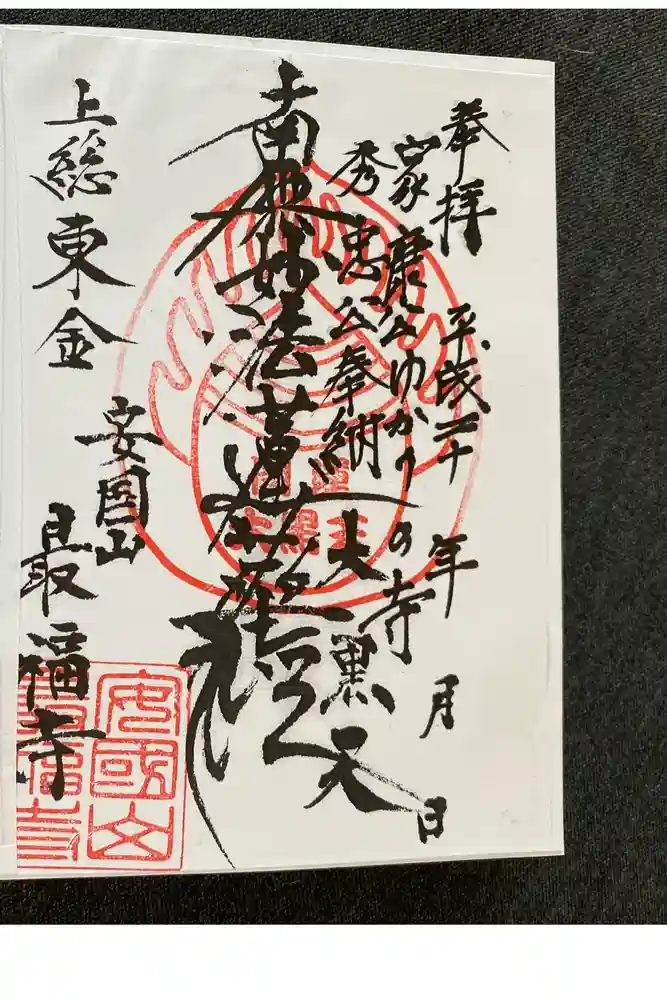 奉拝　平成二十　年　月　日
家康公ゆかりの寺
秀忠公奉納　大黒天
南無妙法蓮華経
上総東金
安国山
最福寺
安國山
最福寺